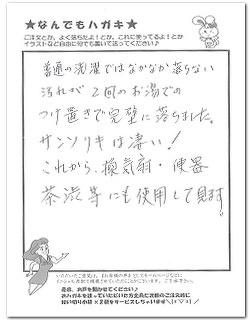 ★なんでもハガキ★
ご注文とか、よく落ちたよ！とか、これに使ってるよ！とか
イラストなど自由に何でも書いて送ってください♪
普通の洗濯ではなかなか落ちない
汚れが2回のお湯での
つけ置きで完璧に落ちました。
サンソリキは凄い！
これから、換気扇・便器
茶渋等にも使用して見ます。
是非、お声を聞かせてください♪